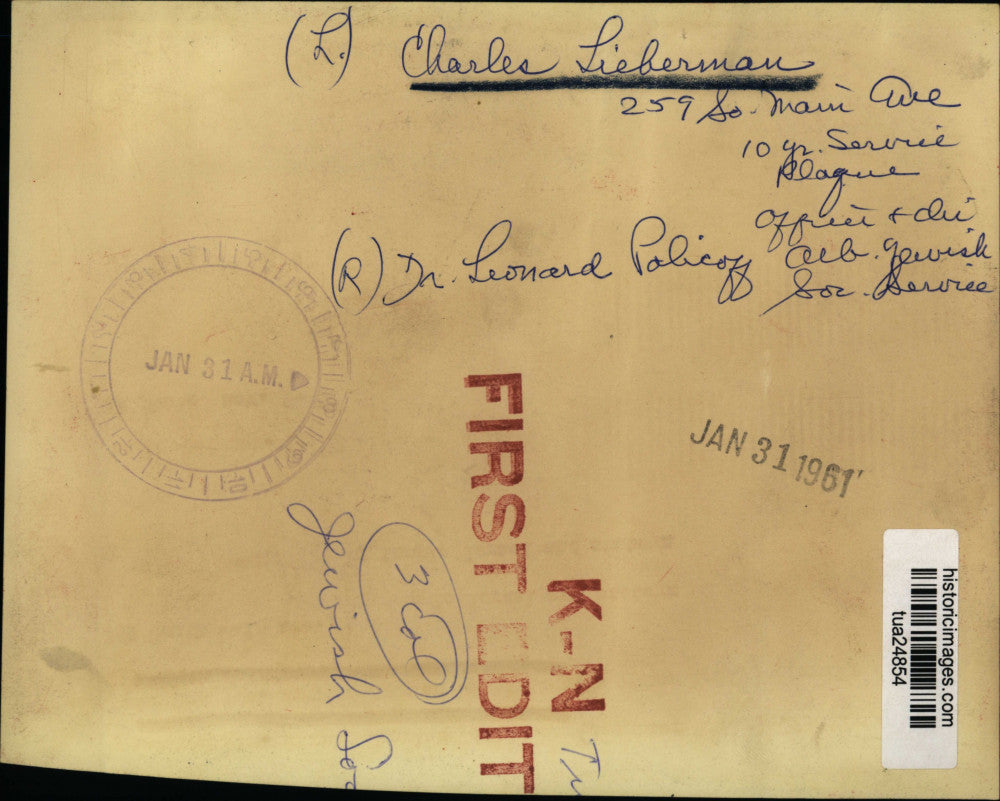 (L.) Charles Lieberman
259 So. Main Ave
10 yr. Service
Plaque
Officer + dir
Alb. Jewish
Soc. Service
(R) Dr. Leonard Policoff
JAN 31 A.M.
JAN 31 1961
FIRST EDIT
K-N
3 col
Jewish Soc
Tu
historicimages.com
tua24854